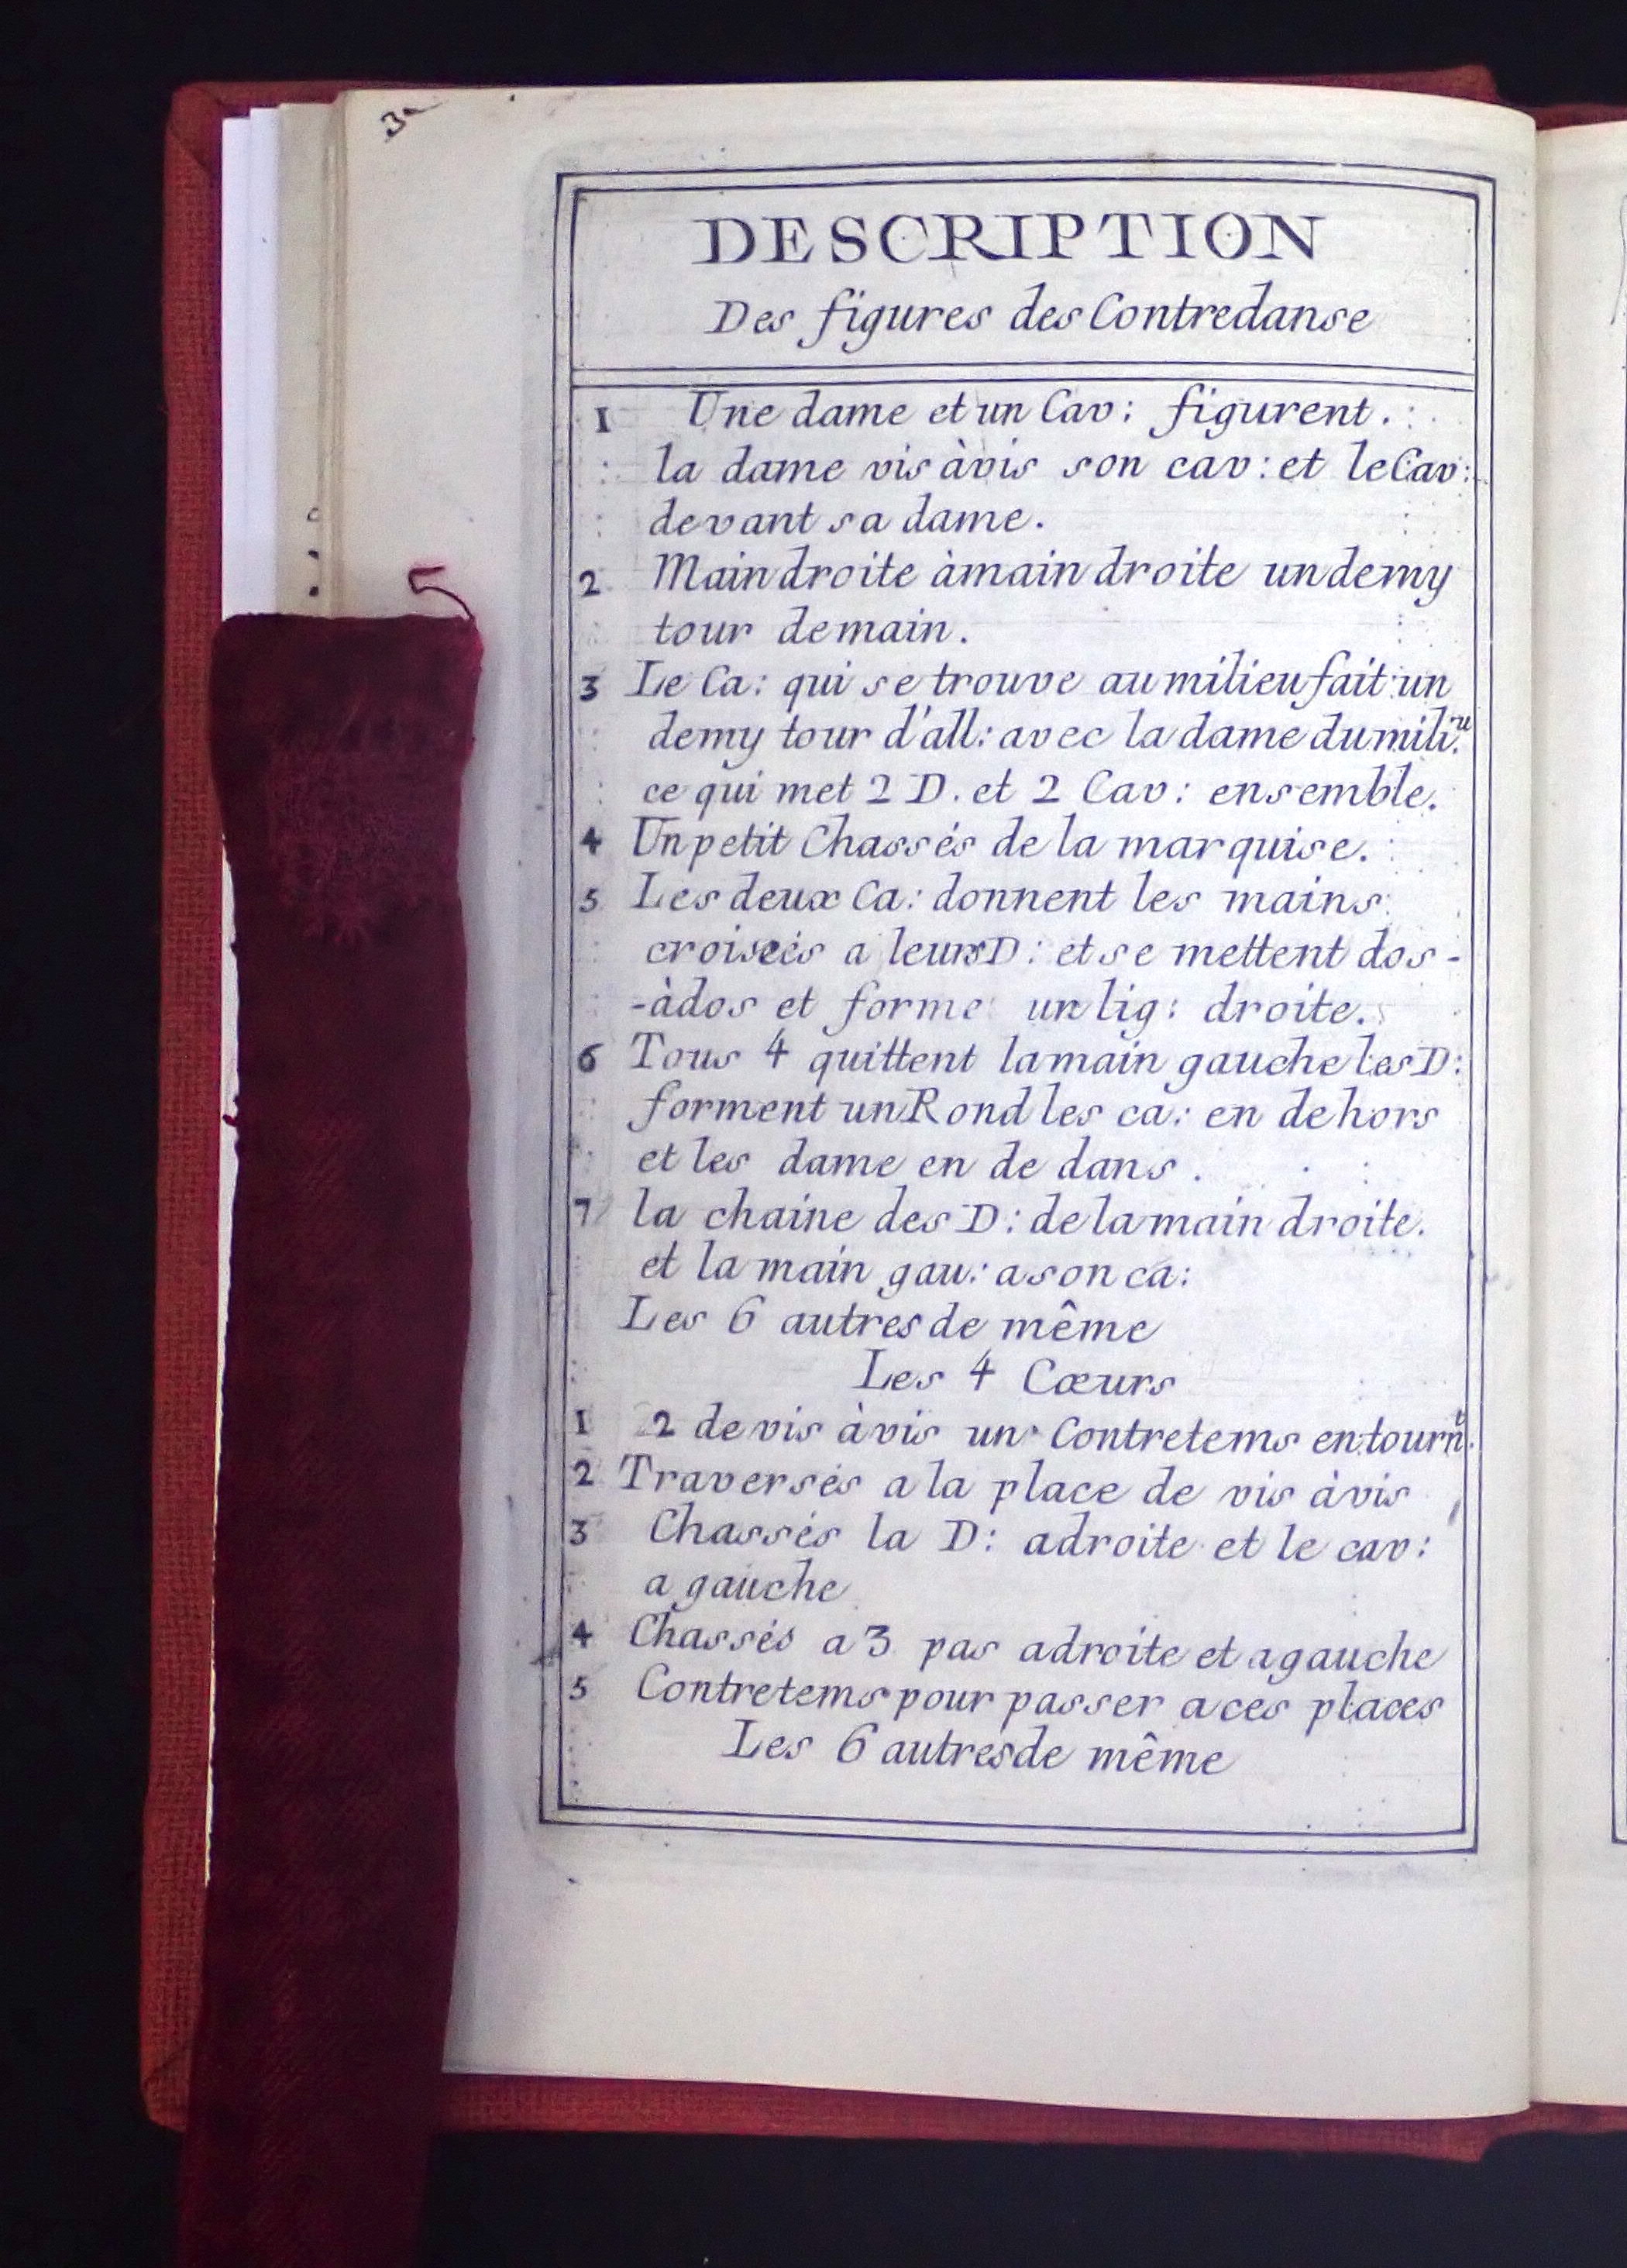 DESCRIPTION
Des figures des Contredanse
1 Une dame et un Cav: figurent.
la dame vis àvis son cav: et le Cav:
devant sa dame.
2 Main droite àmain droite un demy
tour de main.
3 Le Ca: qui se trouve au milieu fait un
demy tour d'all: avec la dame du mili.u
ce qui met 2 D. et 2 Cav: ensemble.
4 Un petit Chassés de la marquise.
5 Les deux Ca: donnent les mains
croiseés a leurs D: et se mettent dos-
-àdos et forme un lig: droite.
6 Tous 4 quittent la main gauche les D:
forment un Rond les ca: en dehors
et les dame en de dans.
7 la chaine des D: de la main droite.
et la main gau: a son ca:
Les 6 autres de même
Les 4 Cœurs
1 2 de vis àvis un Contretems en tourn.t
2 Traversés a la place de vis àvis
3 Chassés la D: adroite et le cav:
a gauche
4 Chassés a 3 pas adroite et agauche
5 Contretems pour passer a ces places
Les 6 autres de même